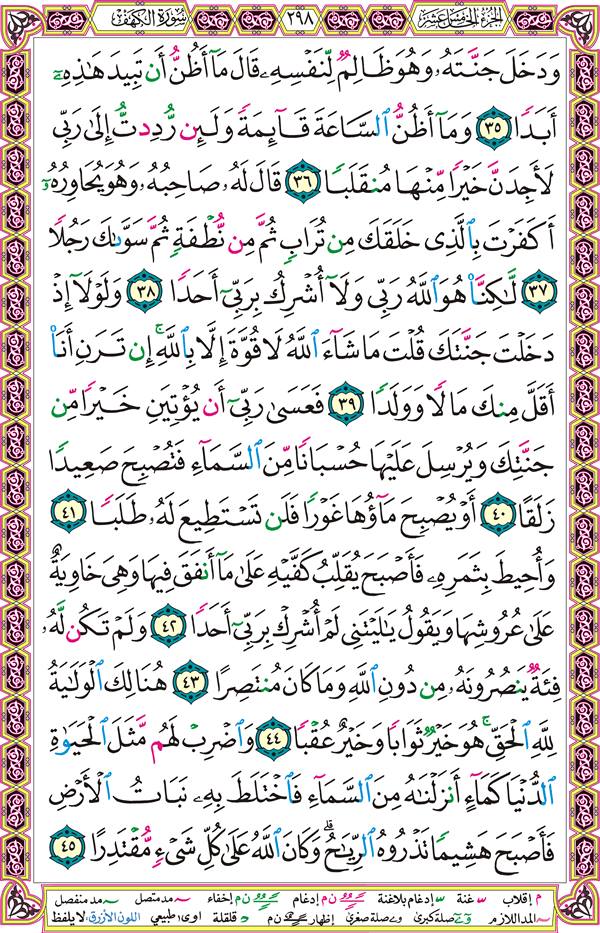 الجزء الخامس عشر
٢٩٨
سورة الكهف
وَدَخَلَ جَنَّتَهُۥ وَهُوَ ظَالِمٌ لِّنَفْسِهِۦ قَالَ مَآ أَظُنُّ أَن تَبِيدَ هَٰذِهِۦٓ
أَبَدًا ٣٥ وَمَآ أَظُنُّ ٱلسَّاعَةَ قَآئِمَةً وَلَئِن رُّدِدتُّ إِلَىٰ رَبِّى
لَأَجِدَنَّ خَيْرًا مِّنْهَا مُنقَلَبًا ٣٦ قَالَ لَهُۥ صَاحِبُهُۥ وَهُوَ يُحَاوِرُهُۥٓ
أَكَفَرْتَ بِٱلَّذِى خَلَقَكَ مِن تُرَابٍ ثُمَّ مِن نُّطْفَةٍ ثُمَّ سَوَّىٰكَ رَجُلًا
٣٧ لَّٰكِنَّا۠ هُوَ ٱللَّهُ رَبِّى وَلَآ أُشْرِكُ بِرَبِّىٓ أَحَدًا ٣٨ وَلَوْلَآ إِذْ
دَخَلْتَ جَنَّتَكَ قُلْتَ مَا شَآءَ ٱللَّهُ لَا قُوَّةَ إِلَّا بِٱللَّهِ ۚ إِن تَرَنِ أَنَا۠
أَقَلَّ مِنكَ مَالًا وَوَلَدًا ٣٩ فَعَسَىٰ رَبِّىٓ أَن يُؤْتِيَنِ خَيْرًا مِّن
جَنَّتِكَ وَيُرْسِلَ عَلَيْهَا حُسْبَانًا مِّنَ ٱلسَّمَآءِ فَتُصْبِحَ صَعِيدًا
زَلَقًا ٤٠ أَوْ يُصْبِحَ مَآؤُهَا غَوْرًا فَلَن تَسْتَطِيعَ لَهُۥ طَلَبًا ٤١
وَأُحِيطَ بِثَمَرِهِۦ فَأَصْبَحَ يُقَلِّبُ كَفَّيْهِ عَلَىٰ مَآ أَنفَقَ فِيهَا وَهِىَ خَاوِيَةٌ
عَلَىٰ عُرُوشِهَا وَيَقُولُ يَٰلَيْتَنِى لَمْ أُشْرِكْ بِرَبِّىٓ أَحَدًا ٤٢ وَلَمْ تَكُن لَّهُۥ
فِئَةٌ يَنصُرُونَهُۥ مِن دُونِ ٱللَّهِ وَمَا كَانَ مُنتَصِرًا ٤٣ هُنَالِكَ ٱلْوَلَٰيَةُ
لِلَّهِ ٱلْحَقِّ ۚ هُوَ خَيْرٌ ثَوَابًا وَخَيْرٌ عُقْبًا ٤٤ وَٱضْرِبْ لَهُم مَّثَلَ ٱلْحَيَوٰةِ
ٱلدُّنْيَا كَمَآءٍ أَنزَلْنَٰهُ مِنَ ٱلسَّمَآءِ فَٱخْتَلَطَ بِهِۦ نَبَاتُ ٱلْأَرْضِ
فَأَصْبَحَ هَشِيمًا تَذْرُوهُ ٱلرِّيَٰحُ ۗ وَكَانَ ٱللَّهُ عَلَىٰ كُلِّ شَىْءٍ مُّقْتَدِرًا ٤٥
م إقلاب غنة إدغام بلاغنة ن م إدغام ن م إخفاء مد متصل مد منفصل
المد اللازم صلة كبرى صلة صغرى إظهار ن م قلقلة اوى طبيعي اللون الأزرق لا يلفظ